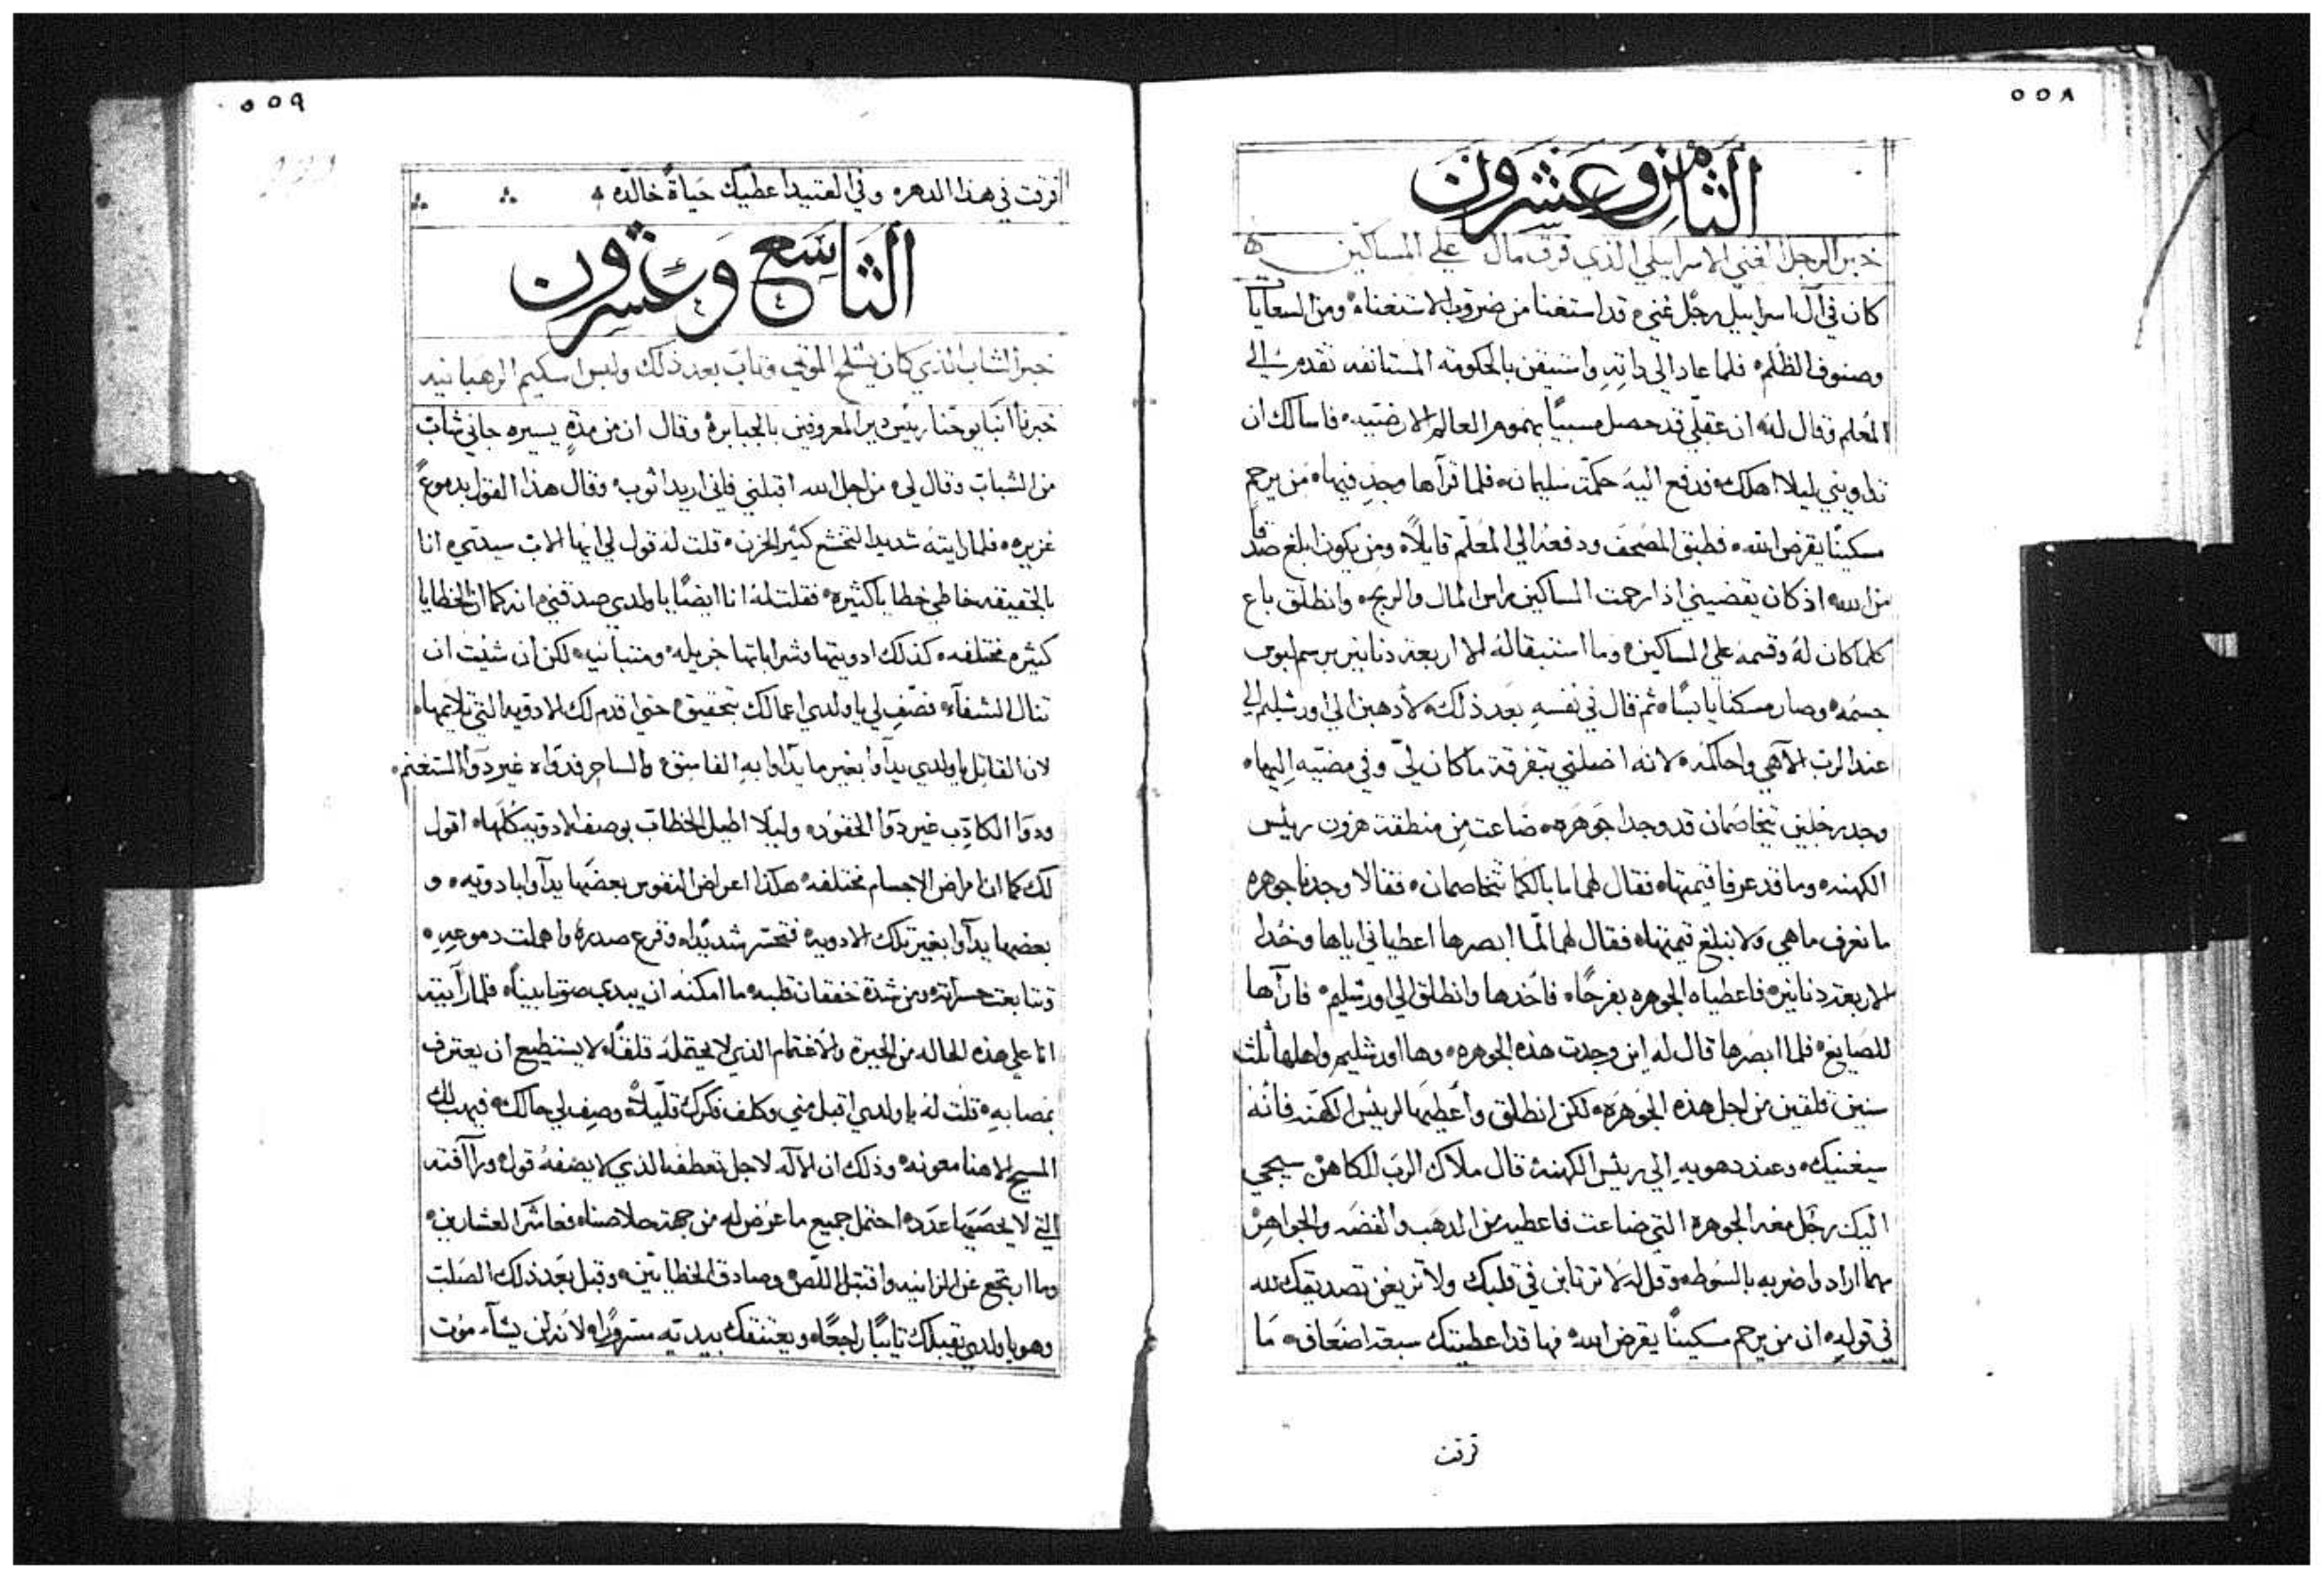 ٥٥٨
الثامن وعشرون
خبر الرجل الغني الاسراييلي الذي فرق مال علي المساكين
كان في آل اسراييل رجل غني ه قد استغنا من ضروب الاستغناه ومن السعايا
وصنوف الظلم ه فلما عاد الي داته واستيقن بالحكومه المستانفه تقدم الي
المعلم وقال له ان عقلي قد حصل مسبيا بهموم العالم الارضيه ه فاسالك ان
تداويني ليلا اهلك ه فدفع اليه حكمة سليمان ه فلما قرآها وجد فيها ه من يرحم
مسكينا يقرض الله ه فطبق المصحف ودفعه الي المعلم قايلا ه ومن يكون ابلغ صدقا
من الله اذ كان يقضيني اذا رحمت المساكين براس المال والربح ه وانطلق باع
كلما كان له وقسمه علي المساكين ه وما استبقا له الا اربعة دنانير برسم لبوس
جسمه ه وصار مسكنا يابسا ه ثم قال في نفسه بعد ذلك ه لأدهبن الي اورشليم الي
عند الرب الآهي واحاكمه ه لانه اضلني بتفرقة ما كان لي وفي مضيه اليها ه
وجد رجلين يتخاصمان قد وجدا جوهره ه ضاعت من منطقة هرون رييس
الكهنه ه وما قد عرفا قيمتها ه فقال لهما ما بالكما تتخاصمان ه فقالا وجدنا جوهره
ما نعرف ماهي ولا نبلغ قيمتها ه فقال لهما لما ابصرها اعطياني اياها وخدا
الاربعة دنانير ه فاعطياه الجوهره بفرحا ه فاخدها وانطلق الي اورشليم ه فارآها
للصايغ ه فلما ابصرها قال له اين وجدت هذه الجوهره ه وها اورشليم واهلها ثلث
سنين قلقين من اجل هذه الجوهره ه لكن انطلق وأعطيها لرييس الكهنه فانه
سيغنيك ه وعند دهوبه الي رييس الكهنه قال ملاك الرب للكاهن سيجي
اليك رجل معه الجوهره التي ضاعت فاعطيه من الدهب والفضه والجواهر
مهما اراد واضربه بالسوطه وقل له لا ترتابن في قلبك ولا تزيغن تصديقك لله
في قوله ه ان من يرحم مسكينا يقرض الله ه فها قد اعطيتك سبعة اضعاف ه ما
فرقت
٥٥٩
فرقت في هذا الدهر ه وفي العتيد اعطيك حياة خالده ه
التاسع وعشرون
خبر الشاب الذي كان يشلح الموتي وتاب بعد ذلك ولبس اسكيم الرهبانيه
خبرنا انبا يوحنا رييس دير المعروفين بالجبابره ه وقال ان من مدة يسيره جاني شاب
من الشباب وقال لي ه من اجل الله اقبلني فاني اريد اتوب ه وقال هذا القول بدموع
غزيره ه فلما رايته شديد التخشع كثير الحزن ه قلت له قول لي ايها الاب سيدي ه انا
بالحقيقه خاطي خطايا كثيره ه فقلت له انا ايضا يا ولدي صدقني ه انه كما ان الخطايا
كثيره مختلفه ه كذلك ادويتها وشراباتها جزيله ه ومتباينه ه لكن ان شيت ان
تنال الشفاء ه فصف لي يا ولدي اعمالك بتحقيق ه حتي اقدم لك الادويه التي تلايمها ه
لان القاتل يا ولدي يداوا بغير ما يداوا به الفاسق ه والساحر فدواه غير دوا المستغنم ه
ودوا الكادب غير دوا الحقود ه وليلا اطيل الخطاب بوصف الادويه كلها ه اقول
لك كما ان امراض الاجسام مختلفه ه هكذا اعراض النفوس بعضها يداوا بادويه ه و
بعضها يداوا بغير تلك الادويه ه فتحسر شديدا ه وقرع صدره واهملت دموعه ه
وتتابعت حسراته ه ومن شدة خفقان قلبه ه ما امكنه ان يبدي صوتا بينا ه فلما رآيته
انا علي هذه الحاله من الحيرة والاغتمام الذي لا يحتمله قلقا ه لا يستطيع ان يعترف
بمصابه ه قلت له يا ولدي اقبل مني وكلف فكرك قليلا ه وصف لي حالك ه فيهب لك
المسيح الاهنا معونه ه وذلك ان الاله لاجل تعطفه الذي لا يصفه قول ه ورآفته
التي لا يحصيها عدد ه احتمل جميع ما عرض له من جهة خلاصنا ه فعاشر العشارين ه
وما ارتجع عن الزانيه واقتبل اللص ه وصادق الخطايين ه وقبل بعد ذلك الصلب
وهو يا ولدي يقبلك تايبا راجعا ه ويعتنقك بيديه مسرورا ه لانه لن يشآء موت